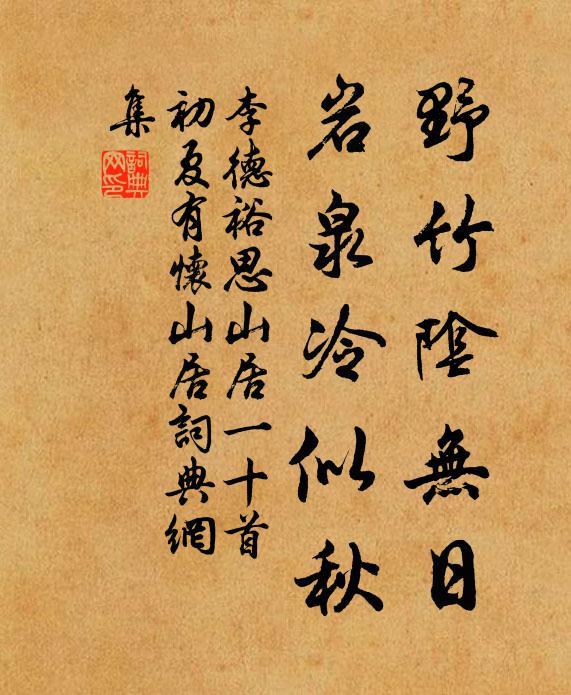 野竹陰無日
岩泉冷似秋
李德裕思山居一十首
初夏有懷山居詞典網
集
詞典
网印